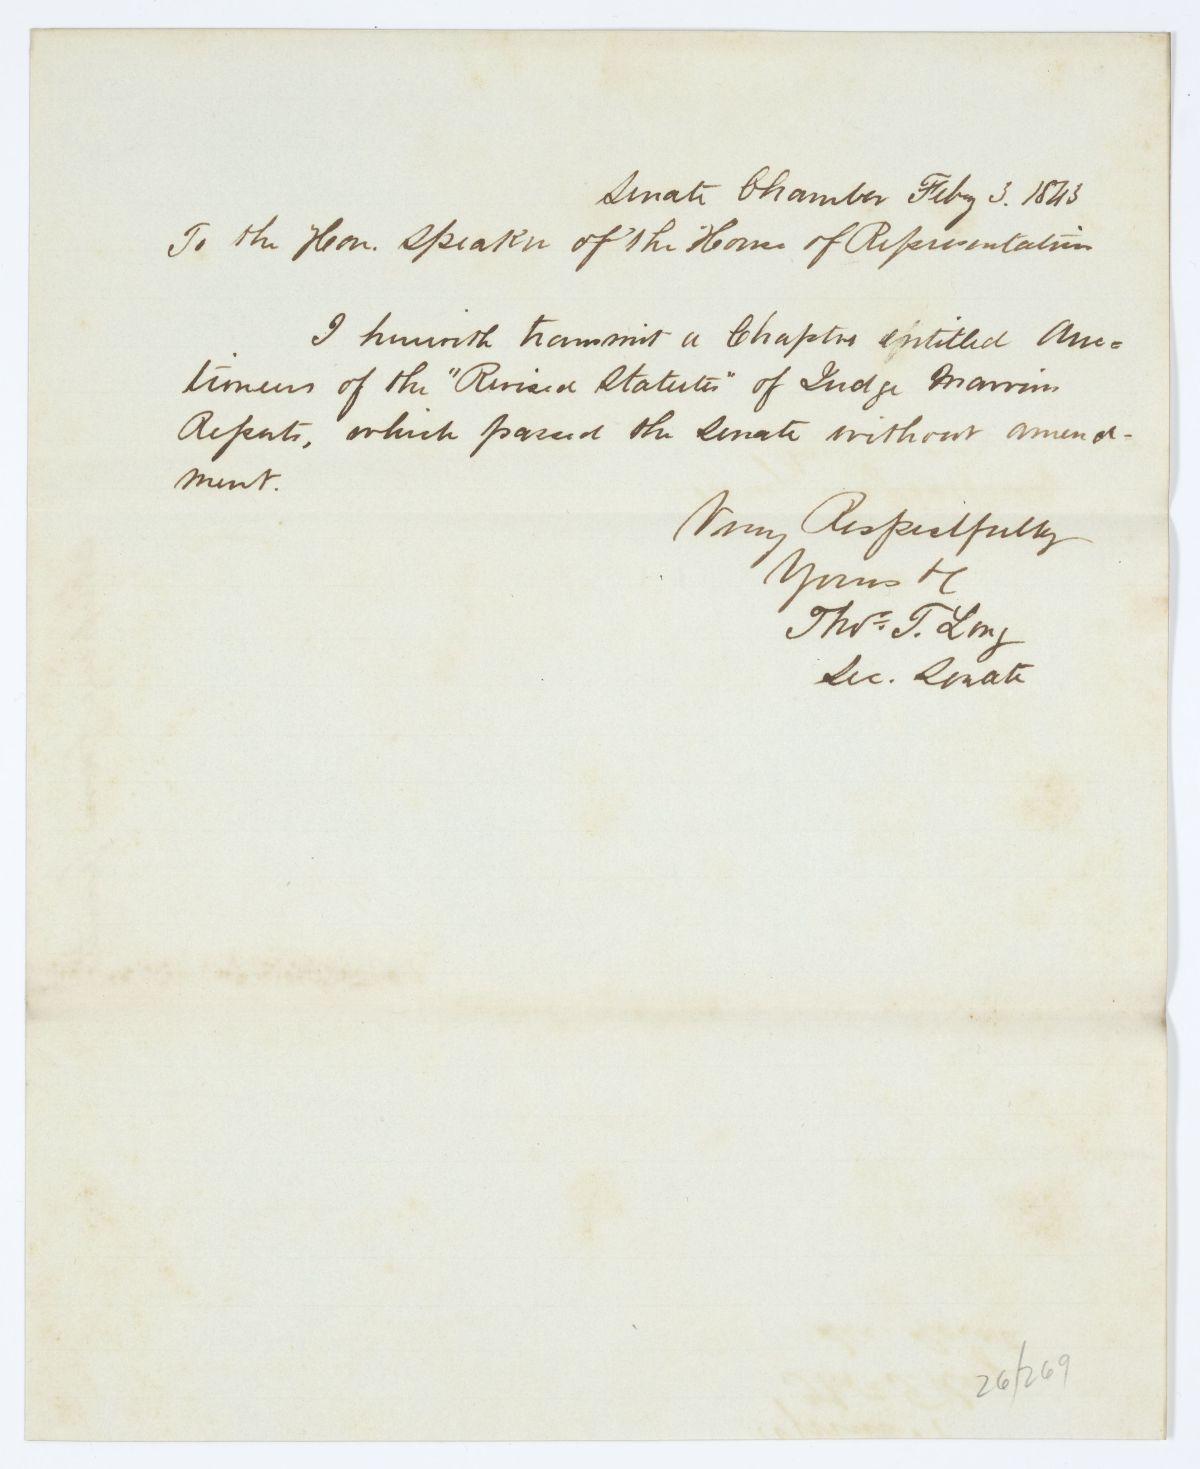 Senate Chamber Feby 3. 1843
To the Hon. Speaker of the House of Representatives
I herewith transmit a Chapter entitled Auc=
tioneers of the "Revised Statutes" of Judge Marvins
Reports, which passed the Senate without amend-
ment.
Very Respectfully
Yours &c
Thos. T. Long
Sec. Senate
26/269